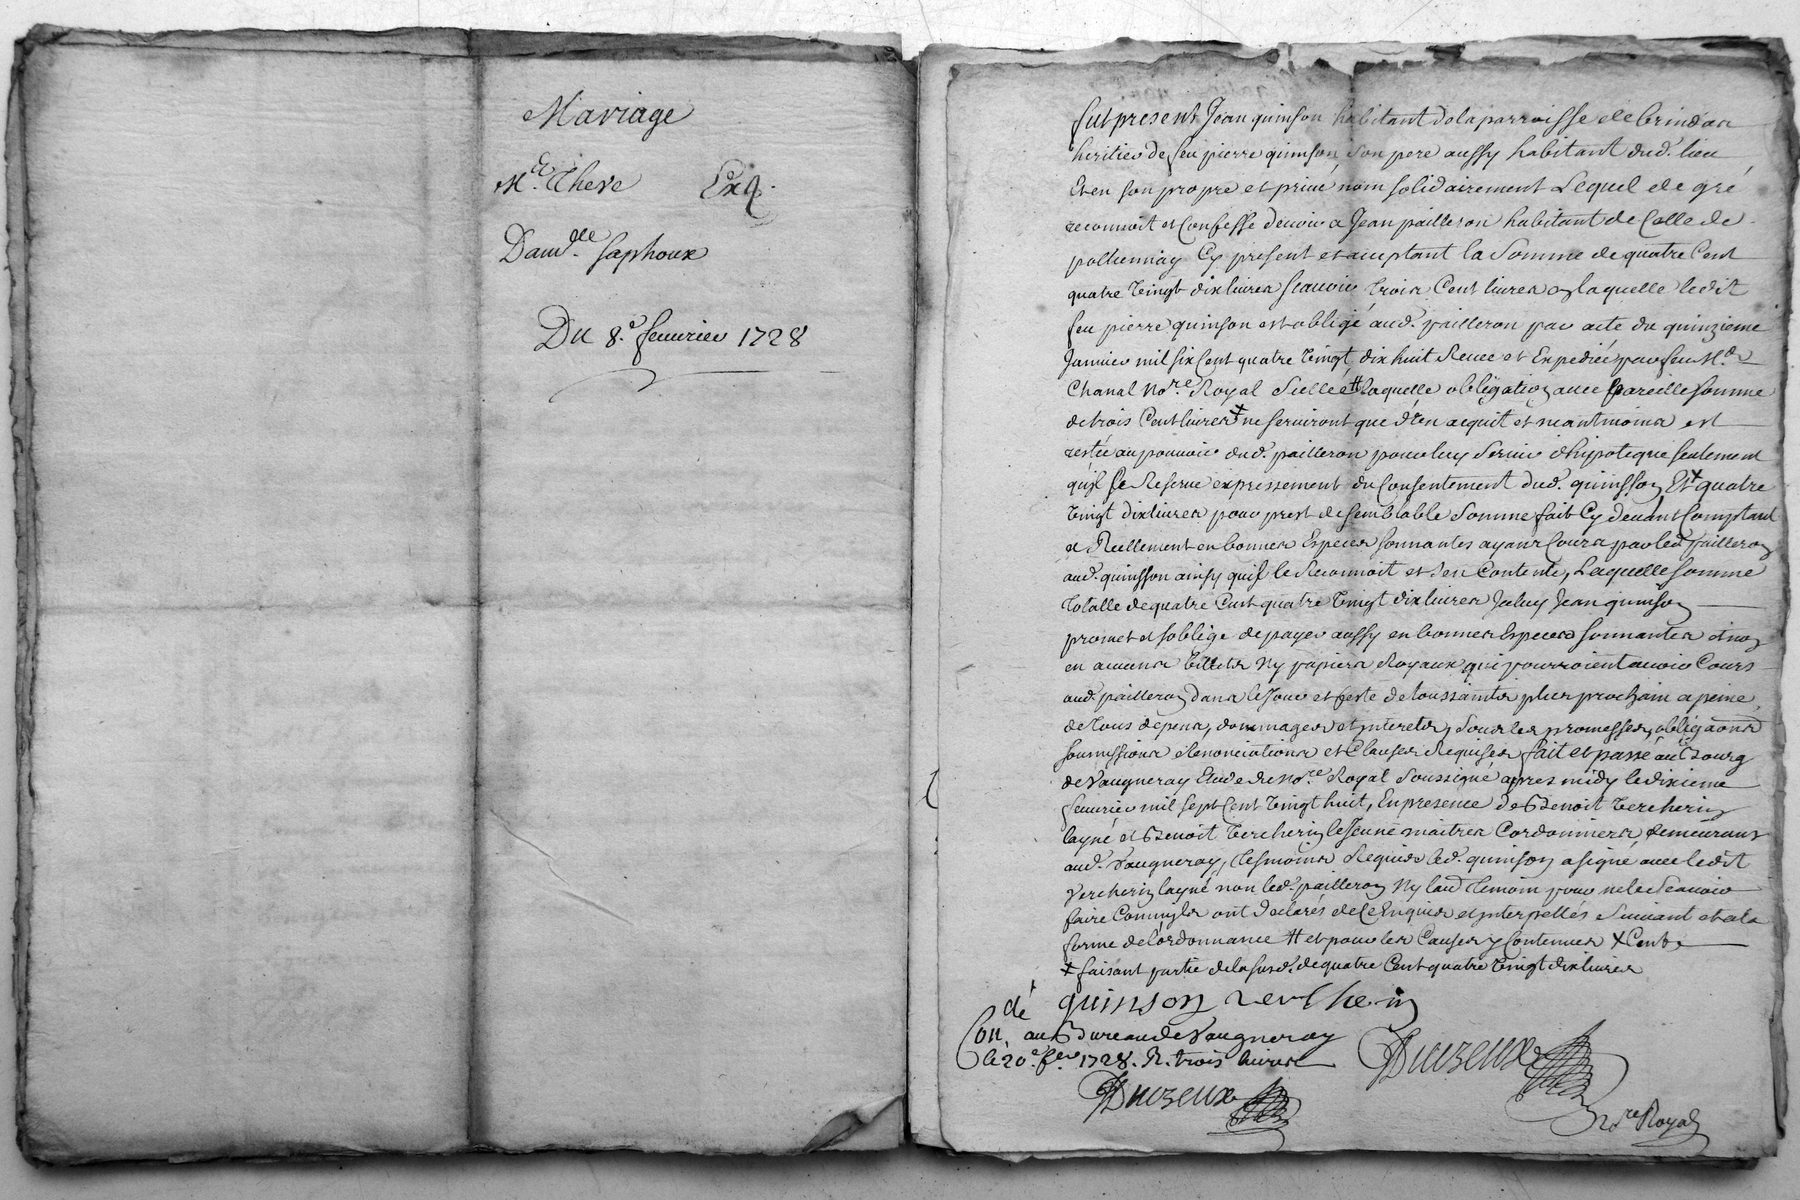 Mariage
Mre. Theve Exp.
Damlle. Saphoux
Du 8.e feuvrier 1728
fut present Jean quinson habitant de la parroisse de brindas
heritier de feu pierre quinson, son pere aussy habitant dud. lieu
et en son propre et privé nom solidairement Lequel de gré
reconnoit et Confesse devoir a Jean pailleron habitant de Celle de
pollionnay Cy present et acceptant la Somme de quatre Cent
quatre vingt dix livres scauoir trois Cent livres a laquelle ledit
feu pierre quinson est obligé aud. pailleron par acte du quinzieme
Janvier mil six Cent quatre vingt dix huit Receu et Expedié par feu Me.
Chanal Nore. Royal # laquelle obligation avec pareille somme
de trois Cent livres + ne serviront que d'en acquit et neantmoins est
restée au pouvoir dud. pailleron pour luy servir d'hipoteque seulement
quil se Reserve expressement du Consentement dud. quinsson Et + quatre
vingt dix livres pour prest de semblable Somme fait Cy devant Comptant
et Reellement en bonnes Especes sonnantes ayant Cours par led. pailleron
aud. quinsson ainsy quil le Reconnoit et s'en Contente, Laquelle somme
totalle de quatre Cent quatre vingt dix livres Jceluy Jean quinson
promet et s'oblige de payer aussy en bonnes Especes sonnantes et non
en aucuns billets Ny papiers Royaux qui pourroient avoir Cours
aud. pailleron dans le Jour et feste de toussaints plus prochain a peine
de tous depens, dommages et Interets, sous les promesses, obligaons
soumissions Renonciations et Clauses Requises fait et passé au Bourg
de Vaugneray Etude de Nore. Royal soussigné apres midy le dixieme
feuvrier mil sept Cent vingt huit, En presence de Benoit Vercherin
layné et Benoit Vercherin le Jeune maitres Cordonniers demeurant
aud. Vaugneray, tesmoins Requis led. quinson a signé avec ledit
Vercherin layné non led. pailleron Ny laud. temoin pour ne le Scavoir
faire Comm'ils ont declarés de Ce Enquis et Interpellés Suivant et a la
forme de l'ordonnance # et pour les Causes y Contenues + Cent
+ faisant partie de la susd. de quatre Cent quatre vingt dix livres
quinson Verchein
Con.dé au Bureau de Vaugneray
le 20.e fev. 1728. R. trois livres
Duzeux
Duzeux
Nre Royal